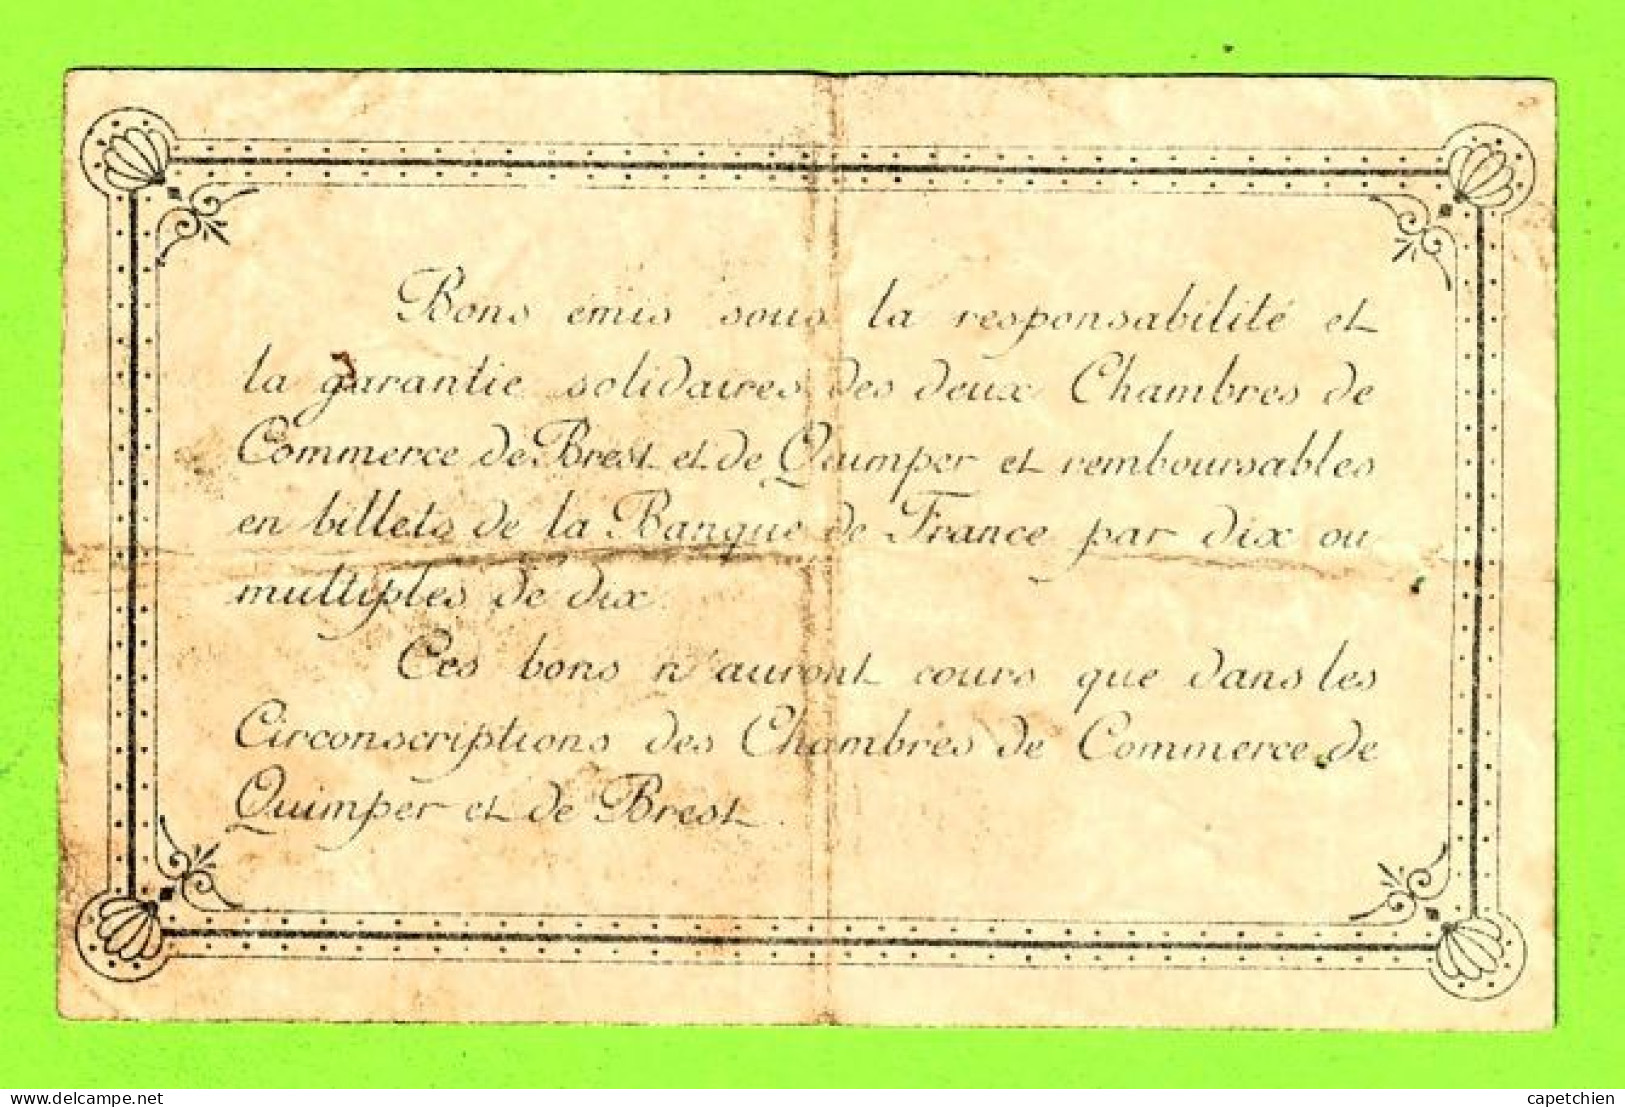 Bons émis sous la responsabilité et
la garantie solidaires des deux Chambres de
Commerce de Brest et de Quimper et remboursables
en billets de la Banque de France par dix ou
multiples de dix.
Ces bons n'auront cours que dans les
Circonscriptions des Chambres de Commerce de
Quimper et de Brest.
delcampe.net
capetchien